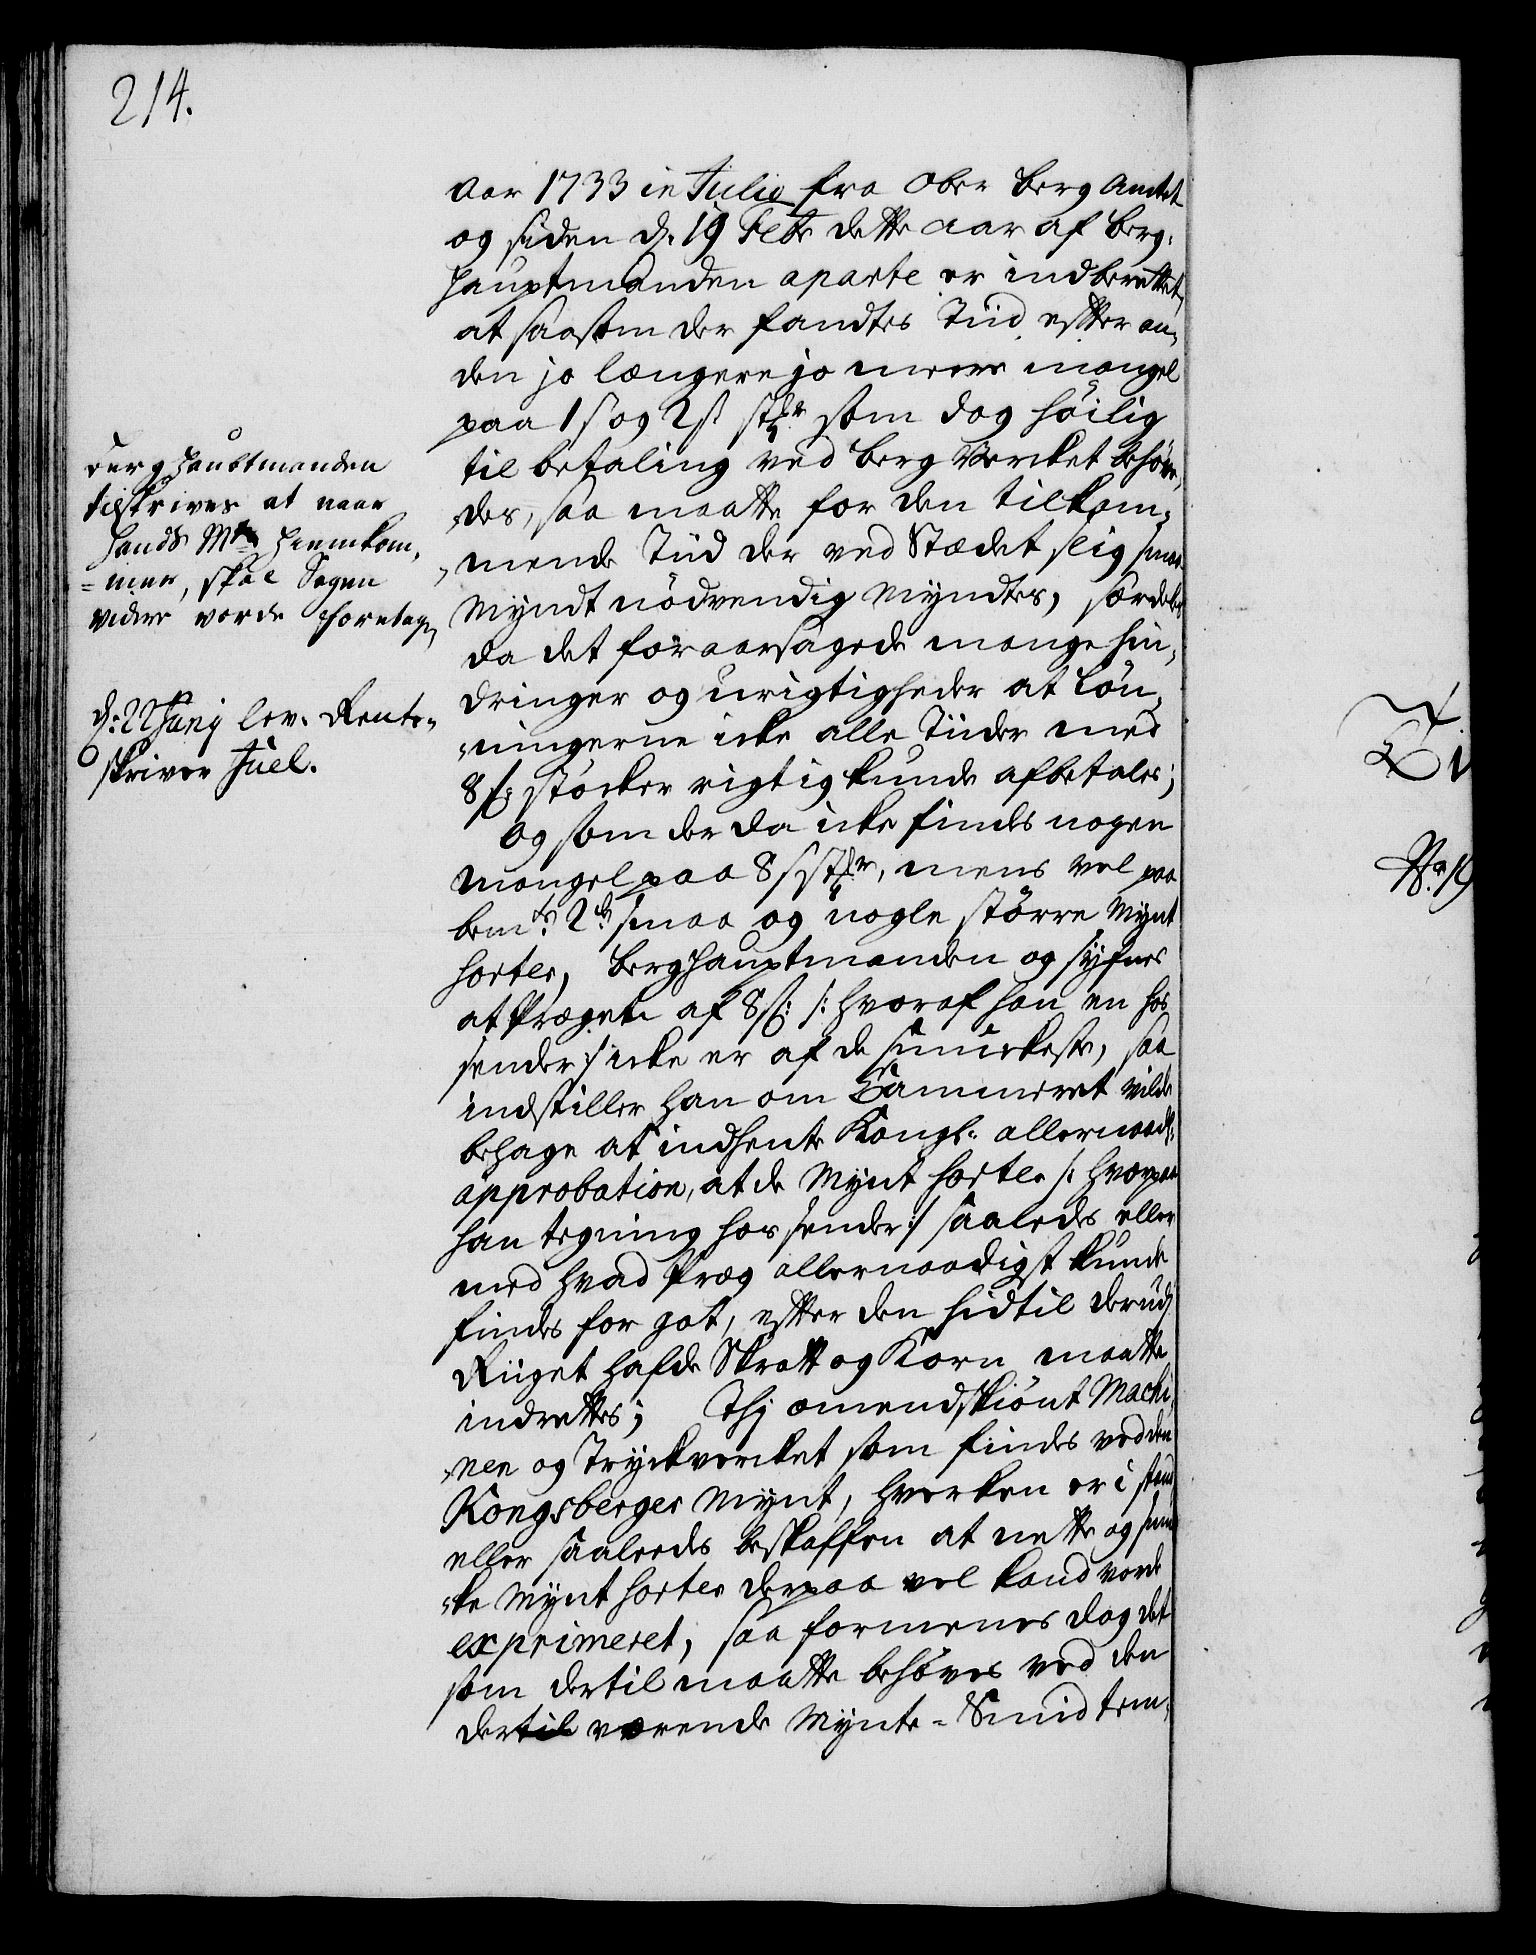 214.
Aar 1733 in Julio fra Ober Berg Amtet
og siden d. 19 Febr dette Aar af Berg-
hauptmanden aparte er indberettet,
at saasom der fandtes Tiid efter an-
den jo længere jo meere mangel
paa 1 s og 2 s stkr som dog höilig
til betaling ved Berg Verket behöve-
des, saa maatte for den tilkom-
mende Tiid der ved Stædet slig smaa
Myndt nödvendig Myndtes, særdeles
da det foraarsagede mange hin-
dringer og urigtigheder at Lön-
ningerne icke alle Tiider med
8 s. stöcker rigtig kunde afbetales;
Og som der da icke findes nogen
mangel paa 8 s stkr, mens vel paa
bemte 2de smaa og nogle större Mynt
sorter, Berghauptmanden og siufnes
at Præget af 8 s: /: hvoraf han en hos
sender :/ icke er af de smuckeste, saa
indstiller han om Cammeret vilde
behage at indhente Kongl. allernaadl:
approbation, at de Mynt sorter /: hvorpaa
han tegning hos sender :/ saaledes eller
med hvad Præg allernaadigst kunde
findes for got, efter den hidtil derudj
Riiget hafde Skratt og Korn maatte
indrettes; Thj omendskiönt Machi-
nen og Tryckverket som findes ved den
Kongsberger Mynt, hverken er i stand
eller saaleedes beskaffen at nette og smu-
cke Mynt sorter derpaa vel kand vorde
exprimeret, saa formenes dog det
som dertil maatte behöves ved den
dertil værende Mynte-Smid tem-
Berghaubtmanden
tilskrives at naar
Hands Mt hiemkom-
mer, skal Sagen
videre vorde foretagen
d: 22 Junij lev. Rente-
skriver Juel.